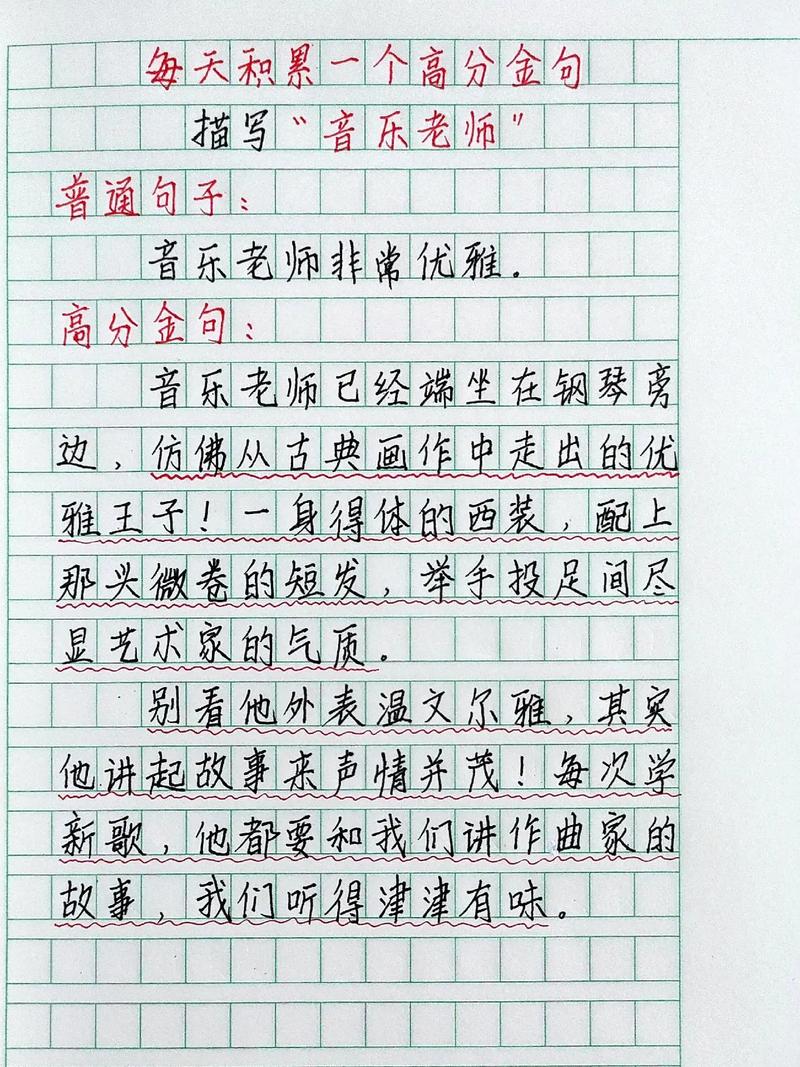 每天积累一个高分金句
描写“音乐老师”
普通句子：
音乐老师非常优雅.
高分金句：
音乐老师已经端坐在钢琴旁
边，仿佛从古典画作中走出的优
雅王子！一身得体的西装，配上
那头微卷的短发，举手投足间尽
显艺术家的气质。
别看他外表温文尔雅，其实
他讲起故事来声情并茂！每次学
新歌，他都要和我们讲作曲家的
故事，我们听得津津有味。